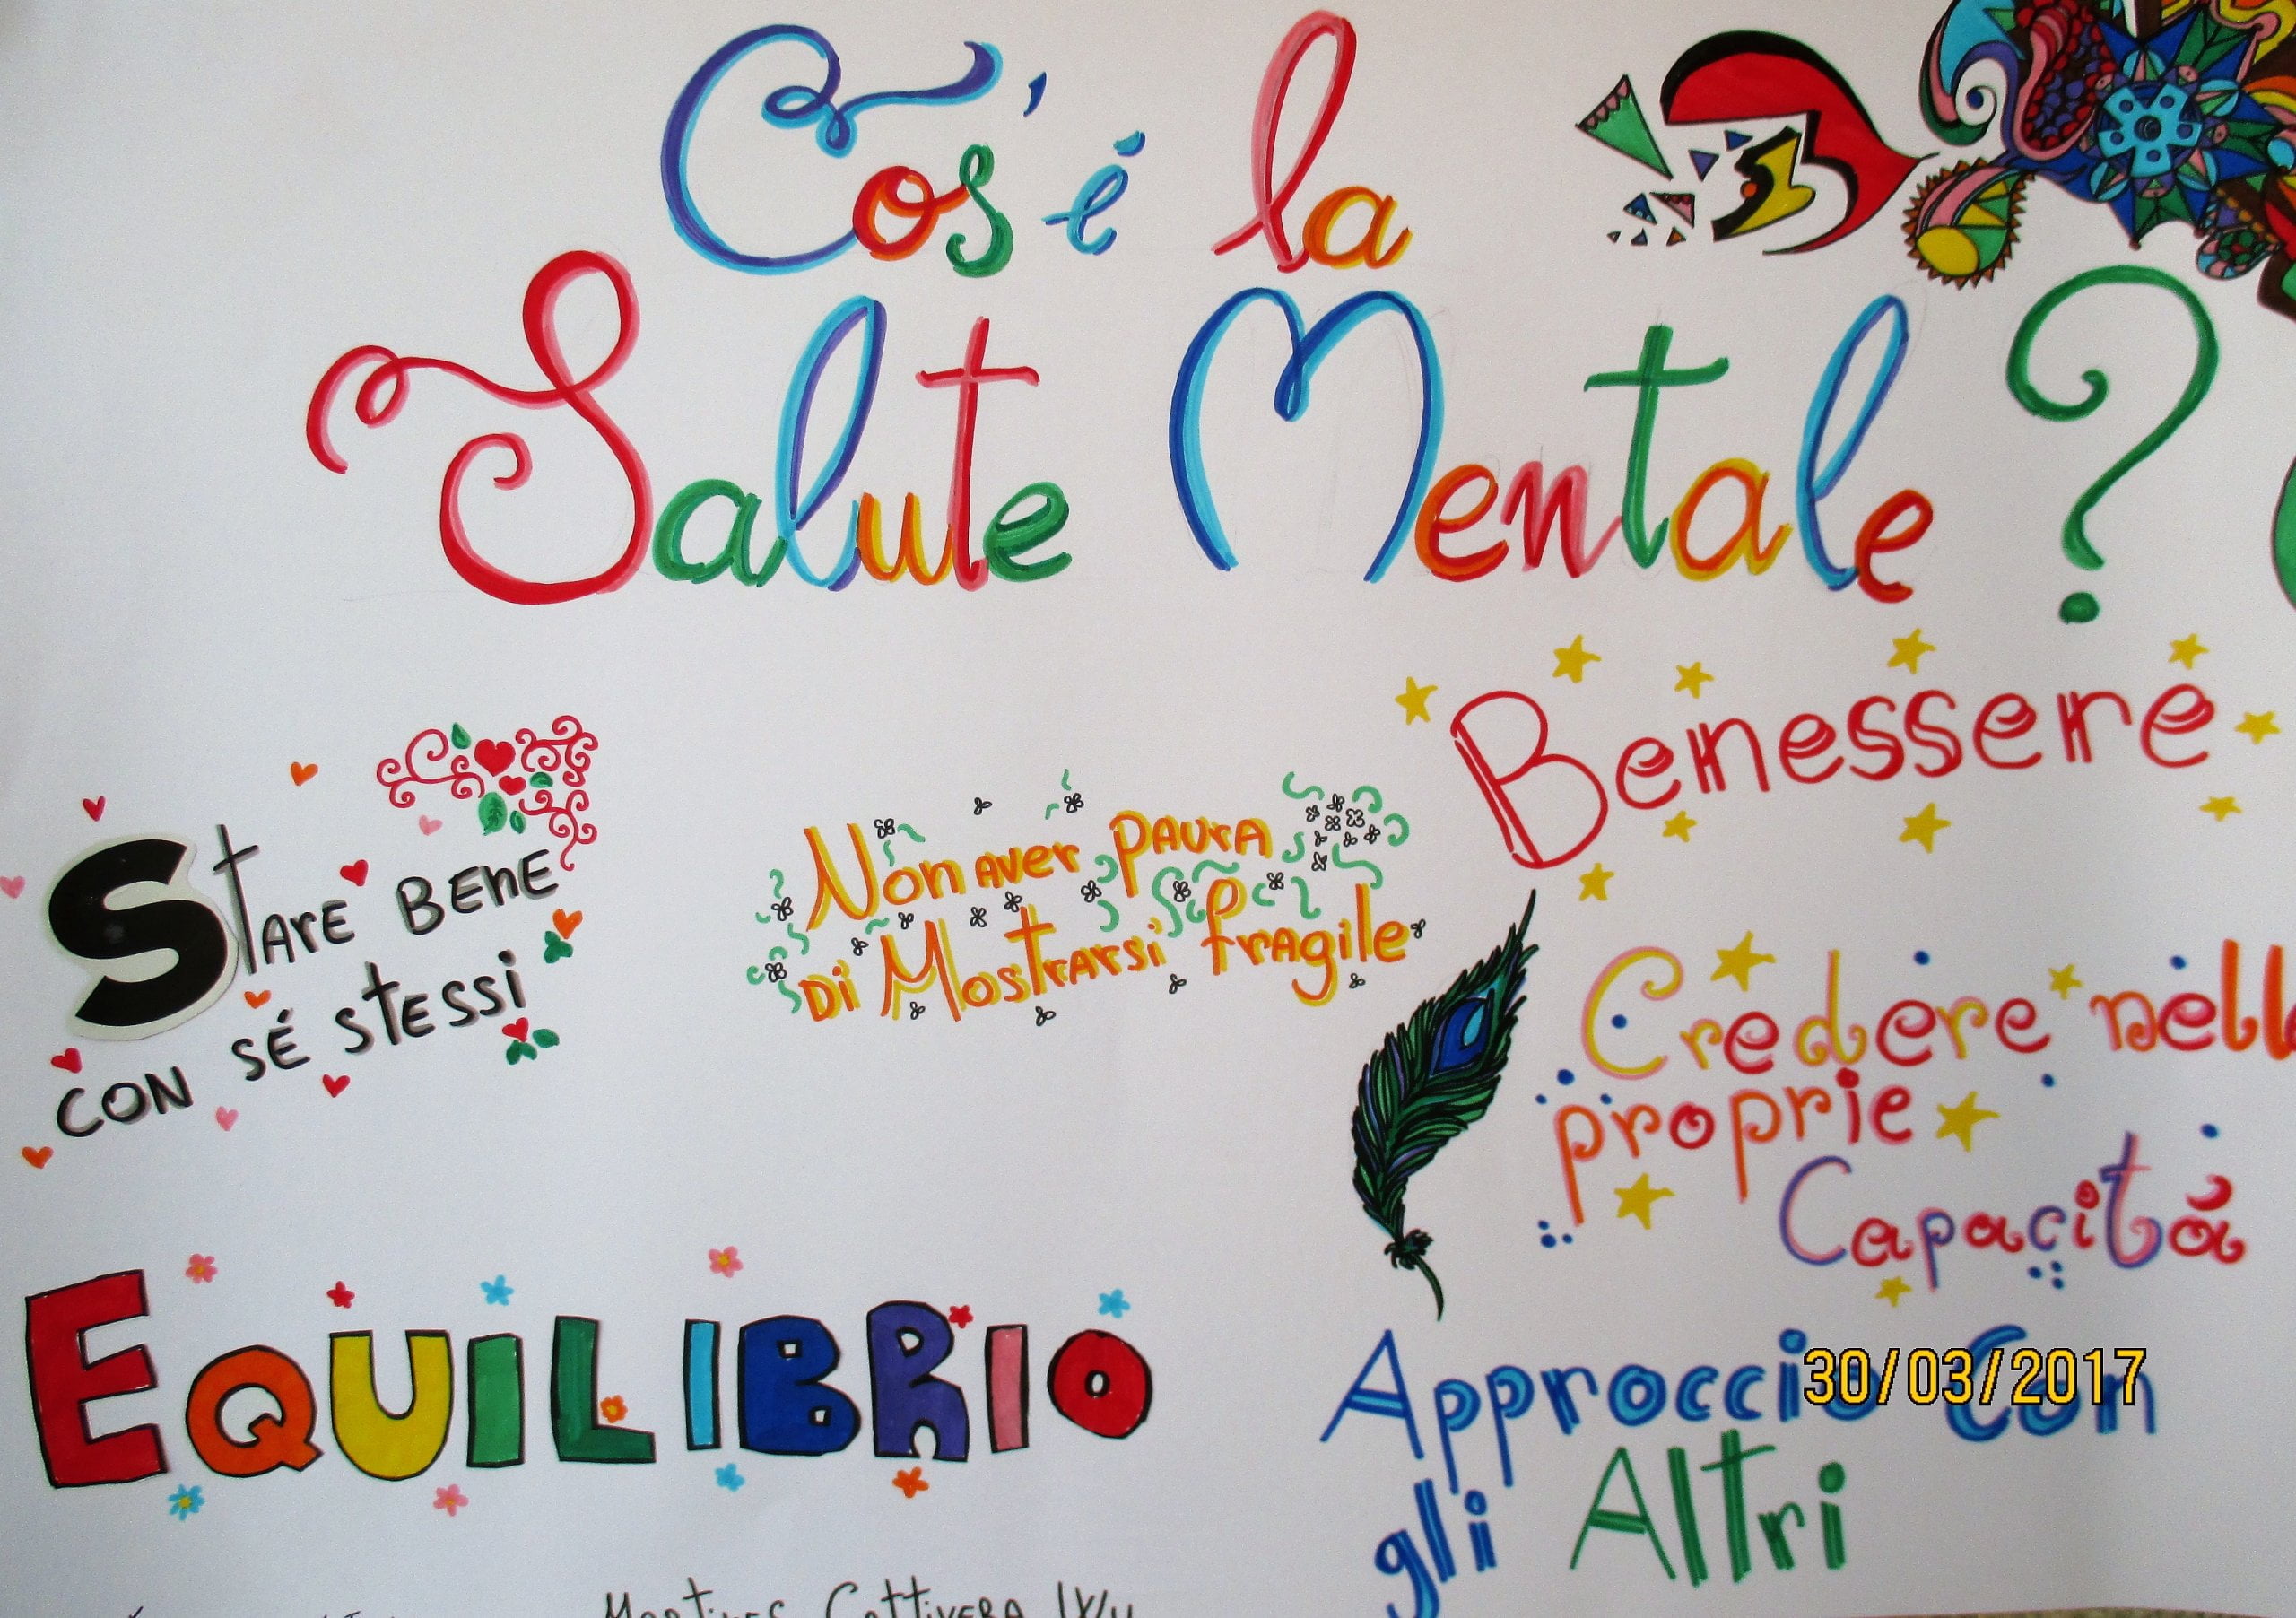 Cos'é la
Salute Mentale ?
Benessere
Stare bene
con sé stessi
Non aver paura
di Mostrarsi fragile
Credere nell
proprie
Capacitá
EQUILIBRIO
Approccio con
gli Altri
30/03/2017